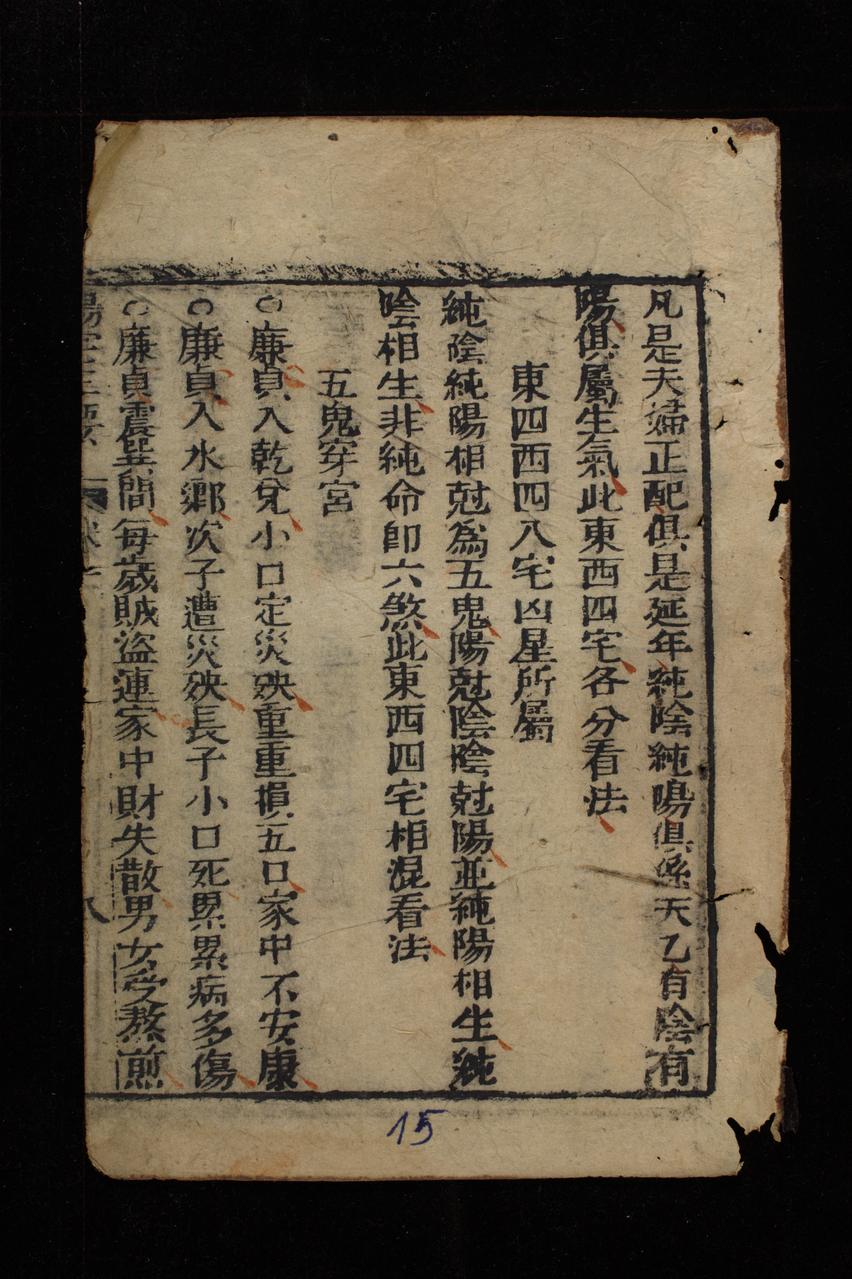 凡是夫婦正配俱是延年純陰純陽俱係天乙有陰有
陽俱屬生氣此東西四宅各分看法
東四西四八宅凶星所屬
純陰純陽相尅為五鬼陽尅陰陰尅陽並純陽相生純
陰相生非純命即六煞此東西四宅相混看法
五鬼穿宮
○廉貞入乾兌小口定災殃重重損五口家中不安康
○廉貞入水鄉次子遭災殃長子小口死累累病多傷
○廉貞震巽間每歲賊盜連家中財失散男女受熬煎
陽宅三要
八
15